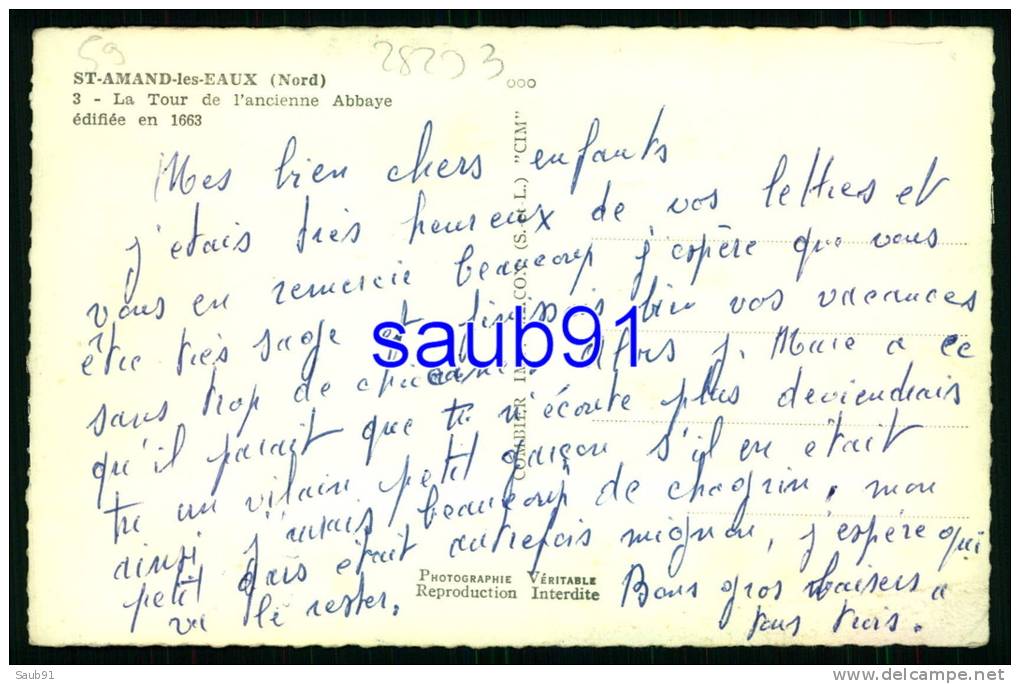 59
28203
ST-AMAND-les-EAUX (Nord)
3 - La Tour de l'ancienne Abbaye
édifiée en 1663
Mes bien chers enfants
j'etais très heureux de vos lettres et
vous en remercie beaucoup j'espère que vous
ête très sage et finissais bien vos vacances
sans trop de Alors J. Marc a ce
qu'il parait que tu n'écoute plus deviendrais
tu un vilain petit garçon s'il en était
ainsi j'aurais beaucoup de chagrin. mon
petit gars était autrefois mignon, j'espère qui
va le rester. Bons gros baisers a
tous trois.
COMBIER IMP. MACON (S.-et-L.) "CIM"
PHOTOGRAPHIE VÉRITABLE
Reproduction Interdite
saub91
Saub91
www.delcampe.net